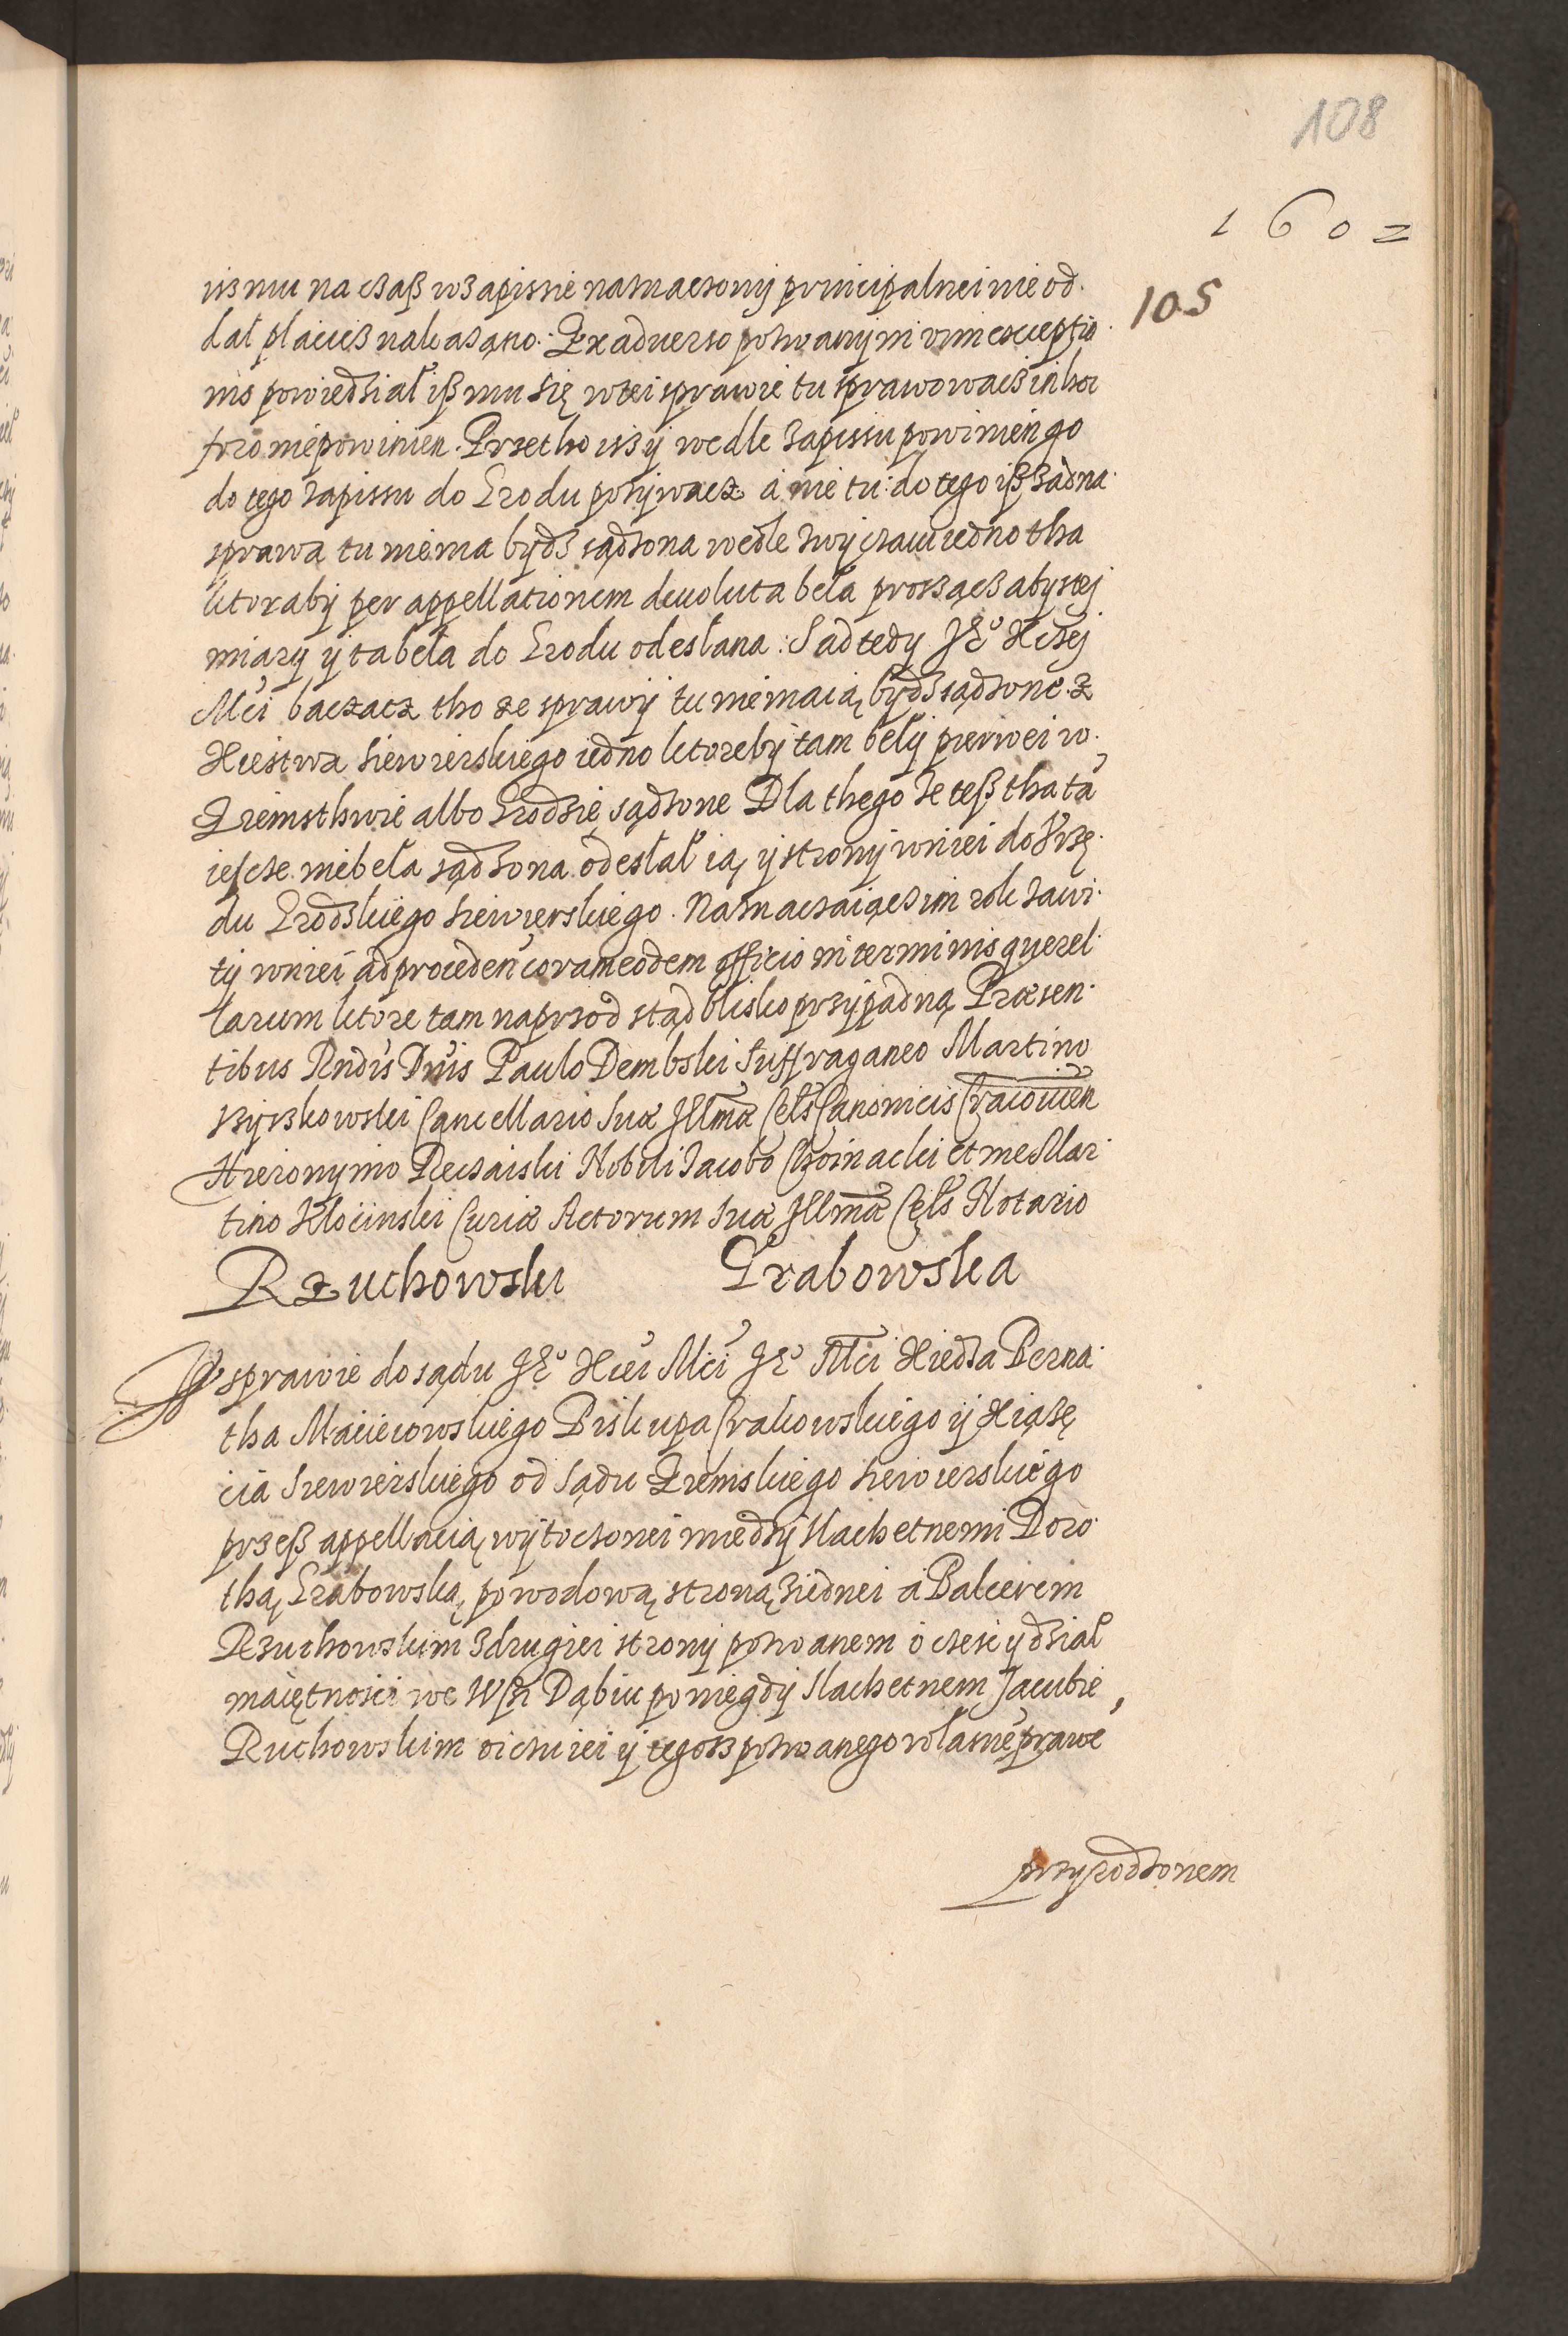 108
1602
105
isz mu na czasz w zapissie naznaczony principalnei nie od
dał płacicz nakazano. Ex aduerso pozwany in vim exceptio
nis powiedział isz mu się w tei sprawie tu sprawowacz in hoc
foro nie powinien. Przetho iszy wedle zapissu powinien go
do tego zapissu do Grodu pozywacz a nie tu: do tego isz żadna
sprawa tu nie ma bydz sądzona wedle zwyczaiu iedno tha
ktoraby per appellationem deuoluta beła prosząc abystej
miary y ta beła do Grodu odesłana: Sad tedy Jego Xczej
Mci baczacz tho ze sprawy tu nie maią bydz sądzone z
Xiestwa Siewierskiego iedno ktoreby tam beły pierwei w
Ziemsthwie albo Grodzie sądzone Dla thego że tesz tha ta
iescze nie beła sądzona odesłał ią y strony w niei do Vrzę
du Grodzskiego Siewierskiego. Naznaczaiącz im rok zawi
ty w niei ad proceden coram eodem officio in terminis querel
larum ktore tam naprzod stąd blisko przypadną Præsen
tibus Rndis Dnis Paulo Dembski Suffraganeo Martino
Szyszkowski Cancellario Suæ Illmæ Cels Canonicis Cracouien
Hieronymo Reczaiski Nobili Jacobo Choinacki et me Mar
tino Kłocinski Curiæ Actorum Suæ Illmæ Cels Notario
Rzuchowski Grabowska
W sprawie do sądu Jego Xcei Mci Jego Mci Xiedza Berna
tha Macieiowskiego Biskupa Crakowskiego y Xiążę
cia Siewierskiego od Sądu Ziemskiego Siewierskiego
przesz appellacią wytoczonei miedzy Slachetnemi Doro
thą Grabowską powodową stroną z iednei a Balcerem
Rzuchowskim z drugiei strony pozwanem o częsc y dział
maiętnosci we Wsi Dąbiu po niegdy Slachetnem Jacubie
Ruchowskim oiczu iei y tegosz pozwanego własnie prawe
przyrodzonem